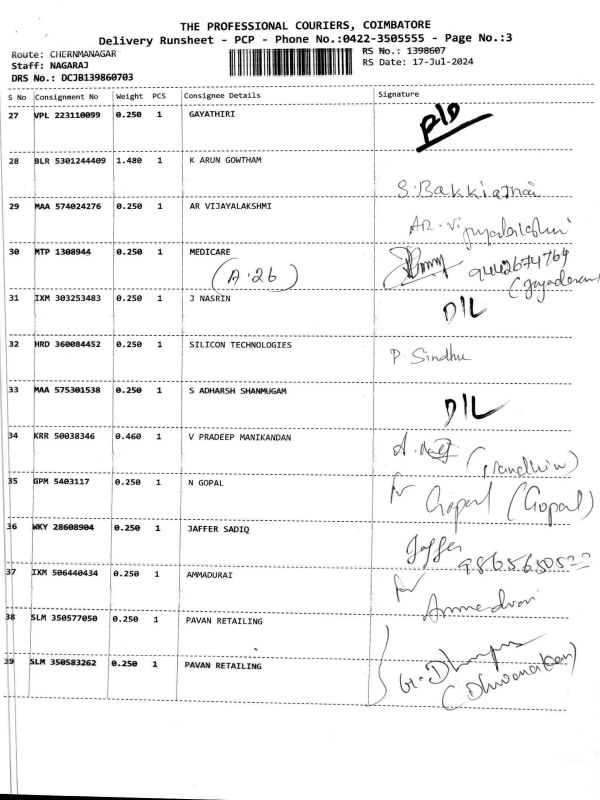 THE PROFESSIONAL COURIERS, COIMBATORE
Delivery Runsheet - PCP - Phone No.:0422-3505555 - Page No.:3
Route: CHERNMANAGAR
RS No.: 1398607
Staff: NAGARAJ
RS Date: 17-Jul-2024
DRS No.: DCJB139860703
S No Consignment No Weight PCS Consignee Details Signature
27 VPL 223110099 0.250 1 GAYATHIRI
28 BLR 5301244409 1.480 1 K ARUN GOWTHAM
S.Bakkiathai
29 MAA 574024276 0.250 1 AR VIJAYALAKSHMI
AR.Vijayalakshmi
30 MTP 1308944 0.250 1 MEDICARE
9442674764
(A.26)
(Jayadevan)
31 IXM 303253483 0.250 1 J NASRIN
D/L
32 HRD 360084452 0.250 1 SILICON TECHNOLOGIES
P Sindhu
33 MAA 575301538 0.250 1 S ADHARSH SHANMUGAM
D/L
34 KRR 50038346 0.460 1 V PRADEEP MANIKANDAN
35 GPM 5403117 0.250 1 N GOPAL
for Gopal (Gopal)
36 WKY 28608904 0.250 1 JAFFER SADIQ
Jaffer
37 IXM 506440434 0.250 1 AMMADURAI
for
38 SLM 350577050 0.250 1 PAVAN RETAILING
39 SLM 350583262 0.250 1 PAVAN RETAILING